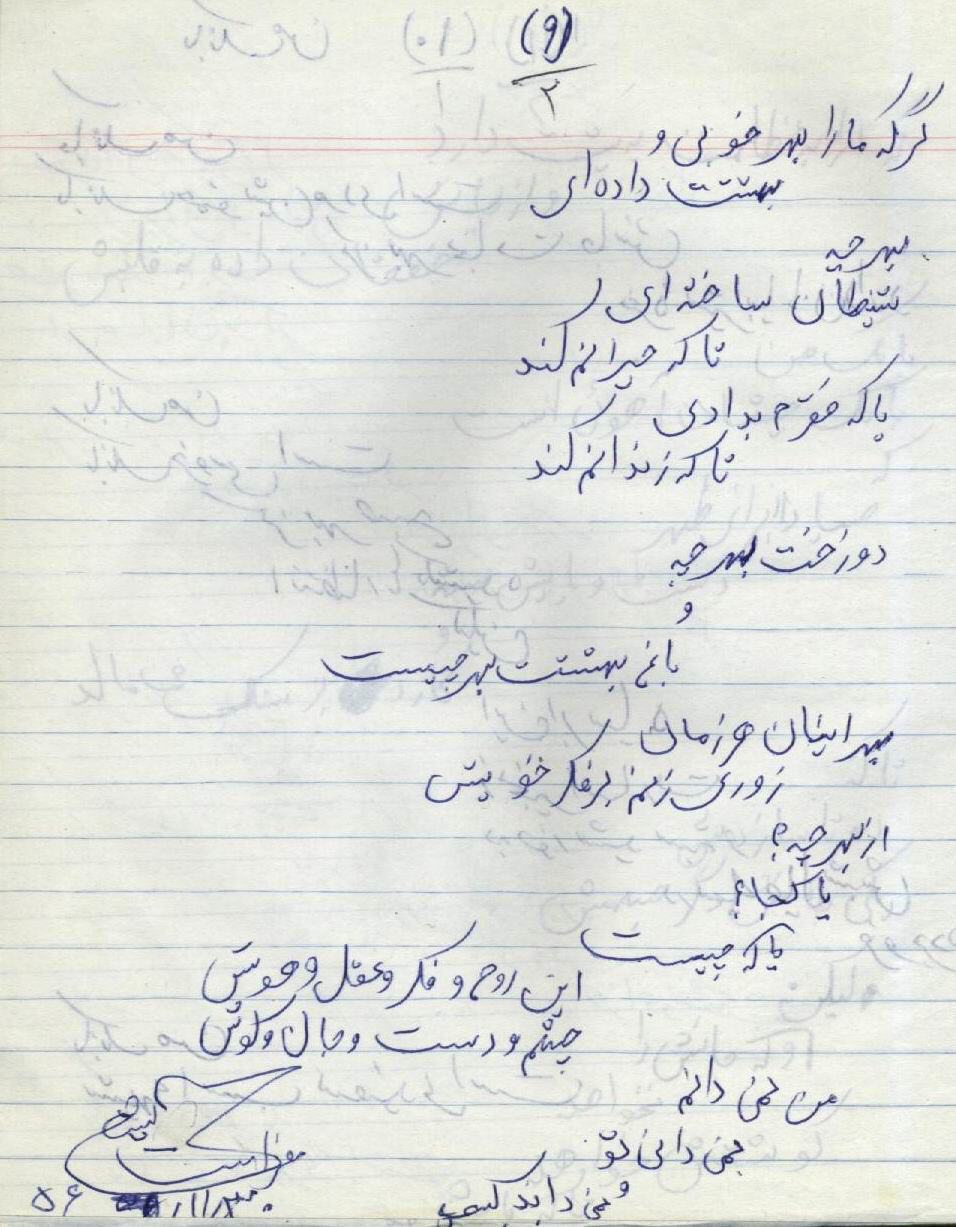 (۹)
۲
گرکه ما را بهر خوبی و
بهشت داده‌ای
بهرچه
شیطان ساخته‌ای
تا که حیرانم کند
یا که فقرم بدادی
تا که زندانم کند
دوزخت بهرچه
و
باغ بهشتت بهر چیست
بهر اینان هر زمانی
زوری زنم بر فکر خویش
از بهرچه؟
یا کجا؟
یا که چیست
این روح و فکر و عقل و هوش
چشم و دست و حال و گوش
من نمی دانم
نمی دانی تو
و نمی داند کسی
۵۶